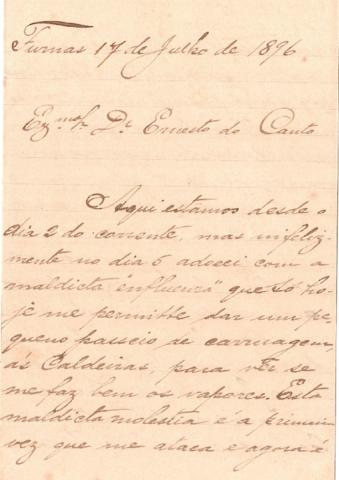 Furnas 17 de Julho de 1896
Exmo Sr. Dr. Ernesto do Canto
Aqui estamos desde o
dia 2 do corrente, mas infeliz-
mente no dia 6 adoeci com a
maldicta "influenza" que só ho-
je me permitte dar um pe-
queno passeio de carruagem,
ás Caldeiras, para vêr se
me faz bem os vapores. Esta
maldicta molestia é a primeira
vez que me ataca e agora é